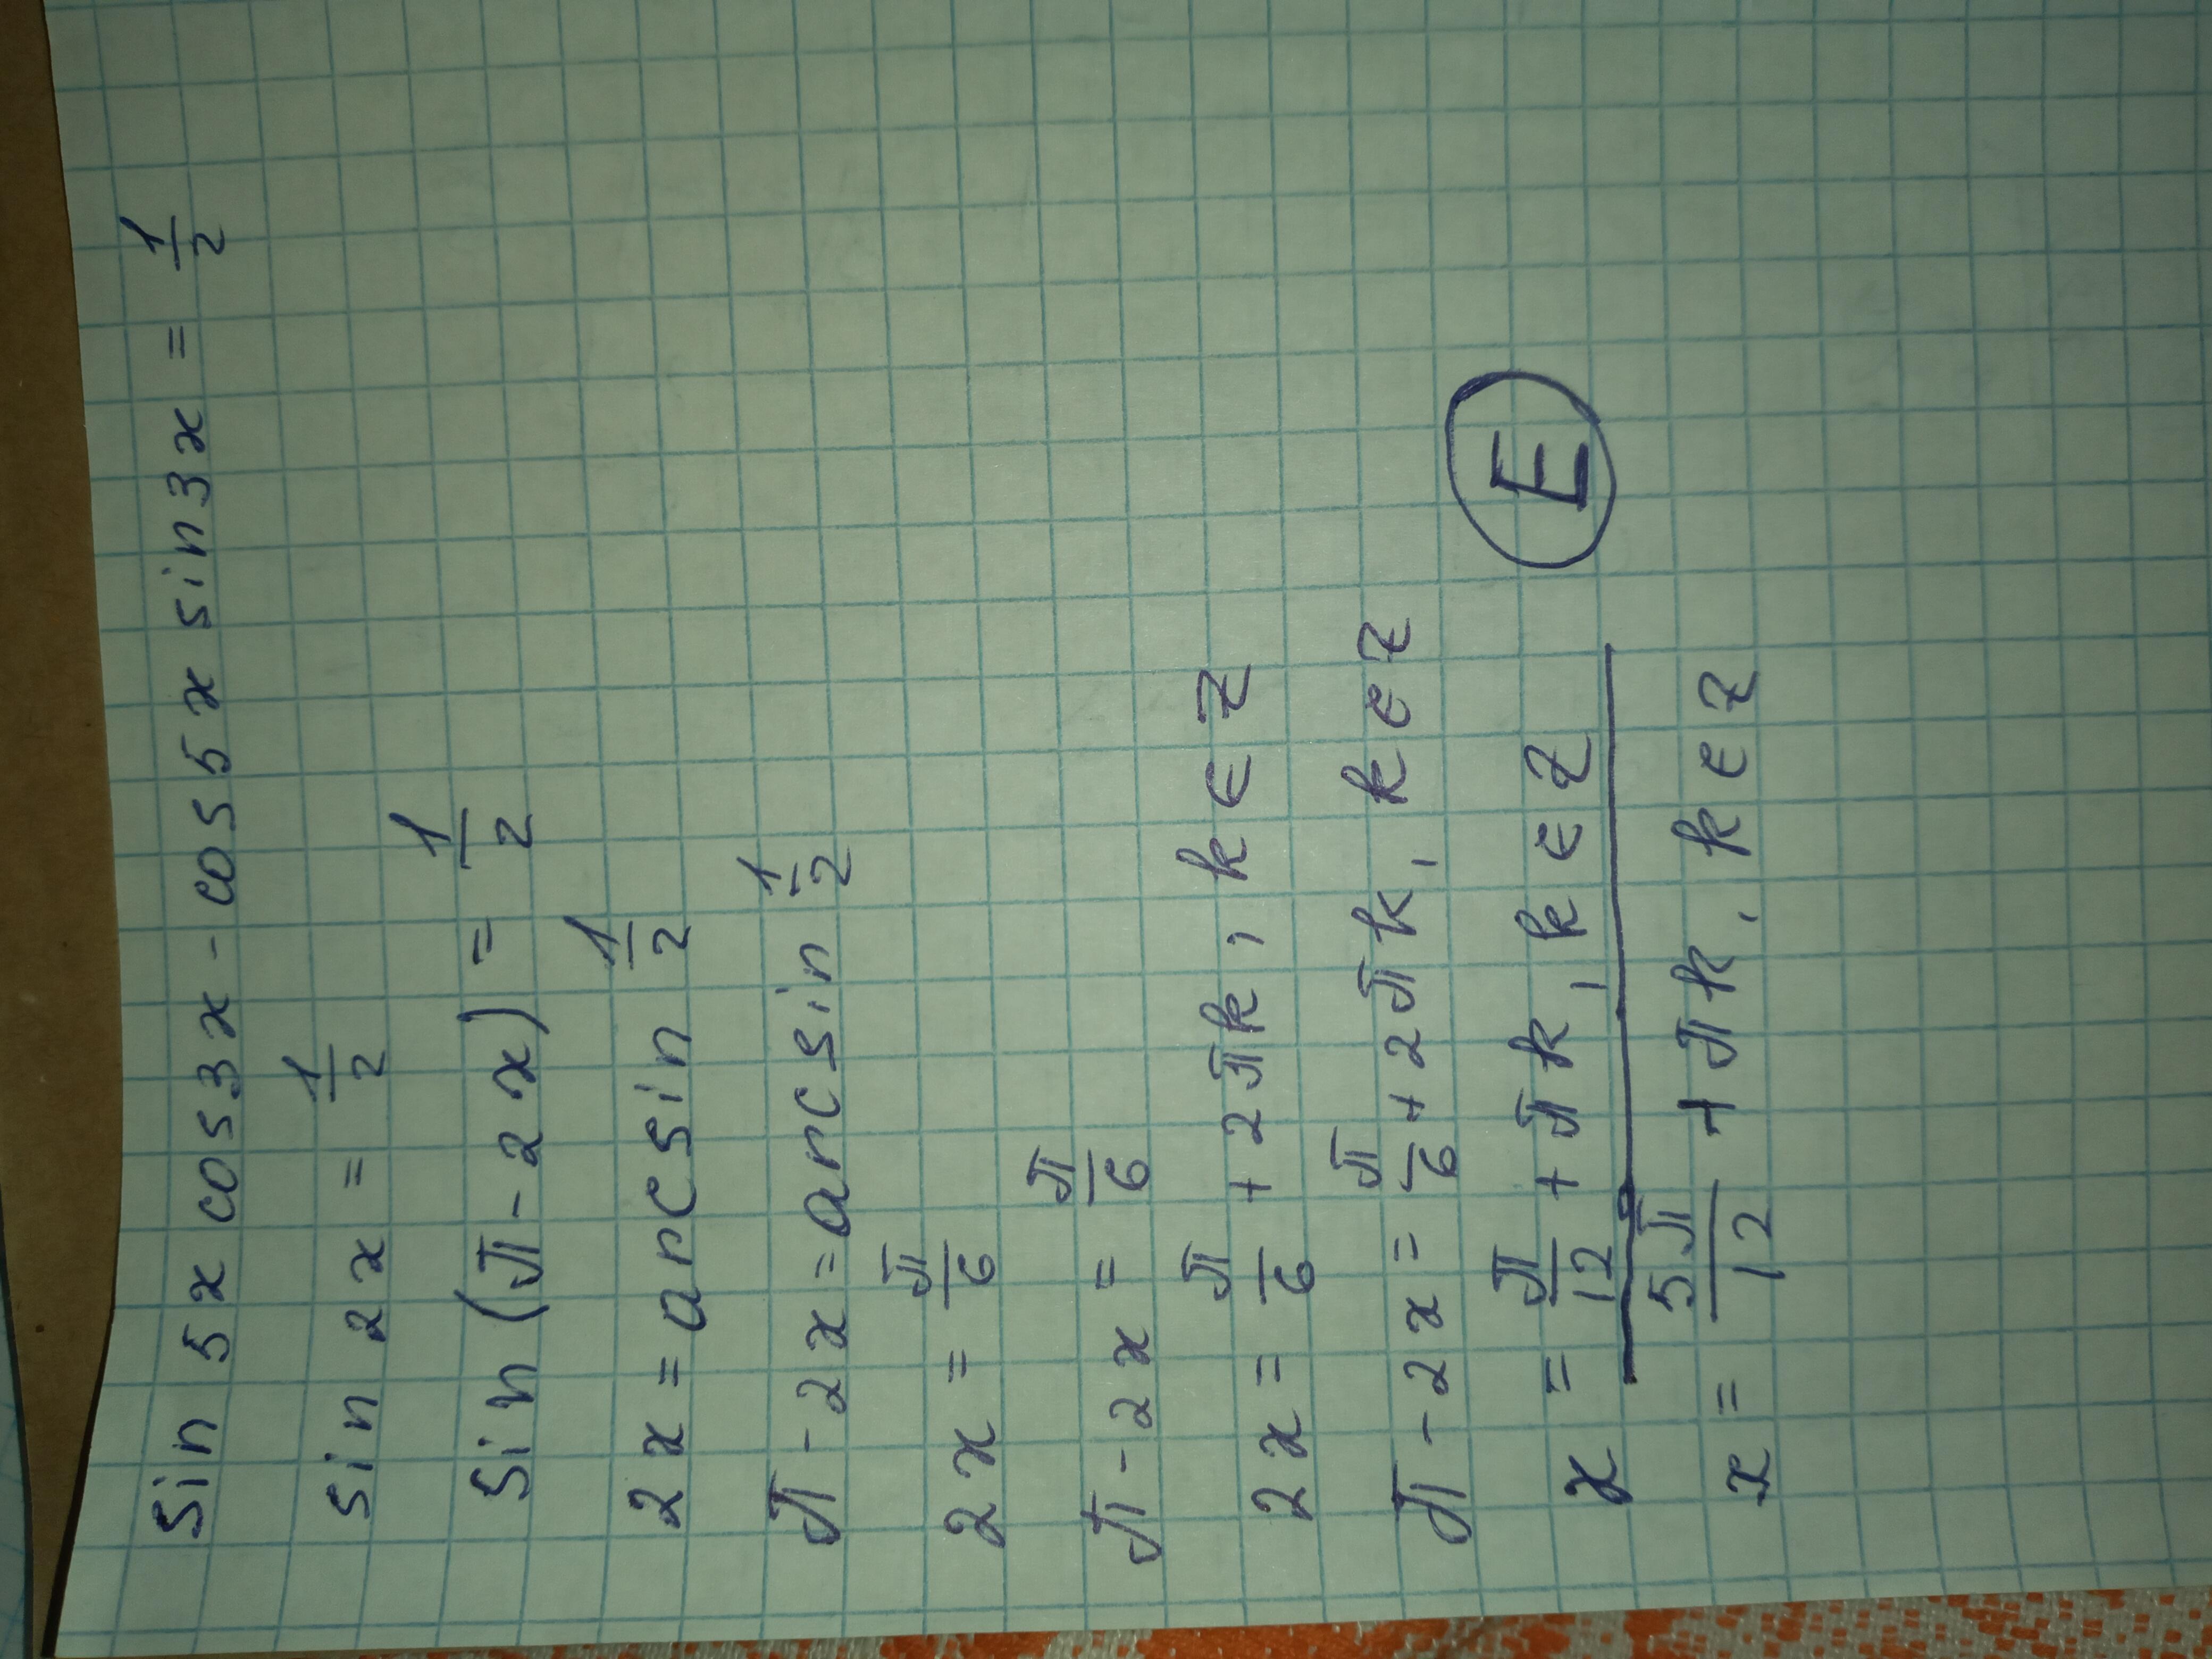 sin 5x cos 3x - cos 5x sin 3x = 1/2
sin 2x = 1/2
sin (π - 2x) = 1/2
2x = arcsin 1/2
π - 2x = arcsin 1/2
2x = π/6
π - 2x = π/6
2x = π/6 + 2πk, k ∈ Z
π - 2x = π/6 + 2πk, k ∈ Z
x = π/12 + πk, k ∈ Z E
x = 5π/12 + πk, k ∈ Z